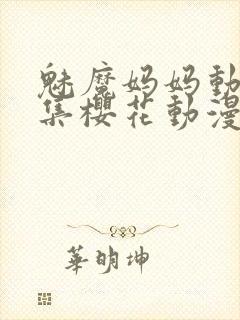 魅魔妈妈動
集櫻花動漫
華明坤